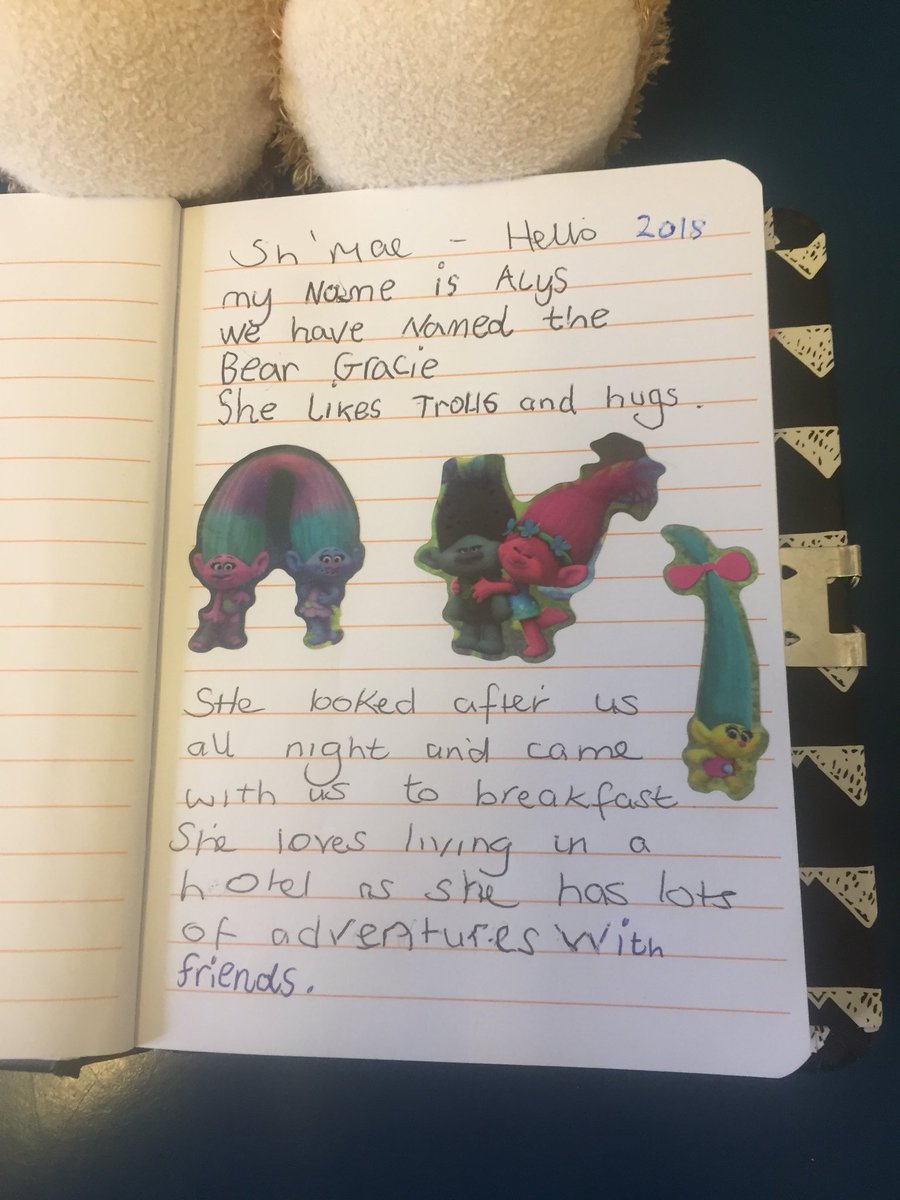 Sh'Mae - Hello 2018
my Name is ALYS
we have Named the
Bear Gracie
She Likes Trolls and hugs.
SHe looked after us
all night and came
with us to breakfast
She loves living in a
hotel as she has lots
of adventures with
friends.